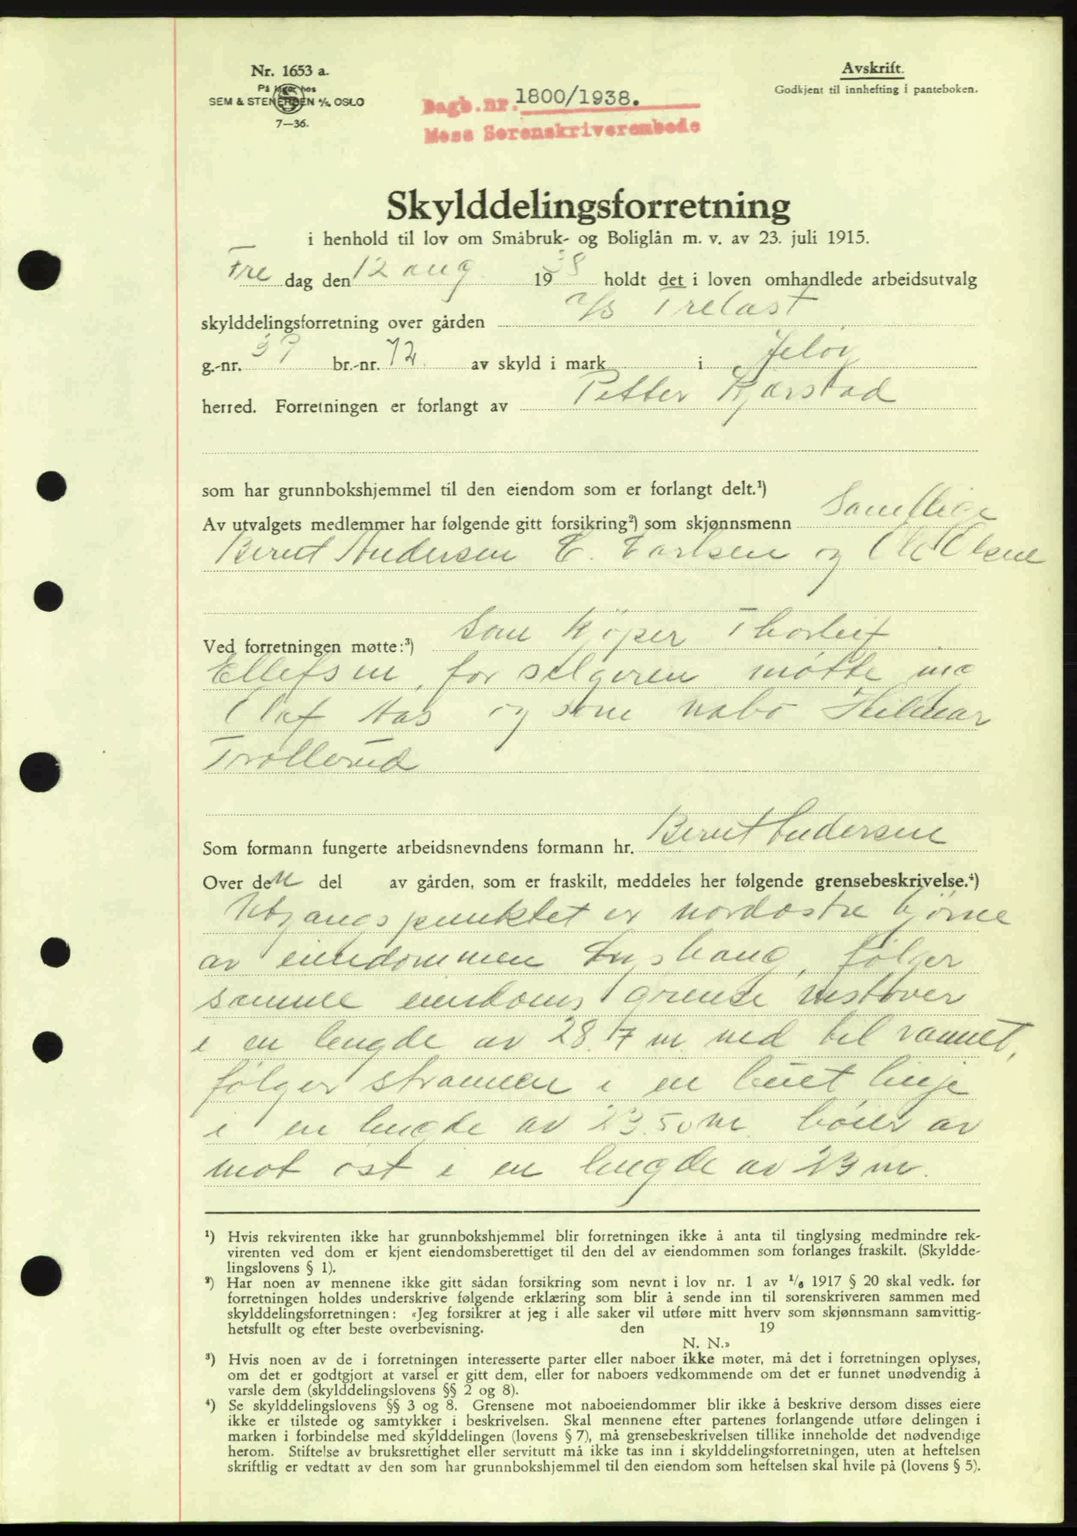 Nr. 1653 a.
På lager hos
SEM & STENERSEN A/S, OSLO
7—36.
Dagb.nr. 1800/1938.
Moss Sorenskriverembede
Avskrift.
Godkjent til innhefting i panteboken.
Skylddelingsforretning
i henhold til lov om Småbruk- og Boliglån m. v. av 23. juli 1915.
Fre dag den 12 aug 1938 holdt det i loven omhandlede arbeidsutvalg
skylddelingsforretning over gården A/S Trelast
g.-nr. 39 br.-nr. 72 av skyld i mark i Jeløy
herred. Forretningen er forlangt av Petter Kjærstad
som har grunnbokshjemmel til den eiendom som er forlangt delt.¹)
Av utvalgets medlemmer har følgende gitt forsikring²) som skjønnsmenn Samtlige
Bernt Andersen E. Carlsen og Ole Olsen
Ved forretningen møtte:³) Som kjøper Thorleif
Ellefsen, for selgeren møtte ing
Olaf Aas og som nabo Hilmar
Trollerud
Som formann fungerte arbeidsnevndens formann hr. Bernt Andersen
Over den del av gården, som er fraskilt, meddeles her følgende grensebeskrivelse.⁴)
Utgangspunktet er nordøstre hjørne
av eiendommen Lyshaug, følger
samme eiendoms grense vestover
i en lengde av 28.7 m ned til vannet,
følger strannen i en buet linje
i en lengde av 23.50 m bøier av
mot øst i en lengde av 23 m.
¹) Hvis rekvirenten ikke har grunnbokshjemmel blir forretningen ikke å anta til tinglysing medmindre rek-
virenten ved dom er kjent eiendomsberettiget til den del av eiendommen som forlanges fraskilt. (Skyldde-
lingslovens § 1).
²) Har noen av mennene ikke gitt sådan forsikring som nevnt i lov nr. 1 av 1/6 1917 § 20 skal vedk. før
forretningen holdes underskrive følgende erklæring som blir å sende inn til sorenskriveren sammen med
skylddelingsforretningen: «Jeg forsikrer at jeg i alle saker vil utføre mitt hverv som skjønnsmann samvittig-
hetsfullt og efter beste overbevisning. den 19
N. N.»
³) Hvis noen av de i forretningen interesserte parter eller naboer ikke møter, må det i forretningen oplyses,
om det er godtgjort at varsel er gitt dem, eller for naboers vedkommende om det er funnet unødvendig å
varsle dem (skylddelingslovens §§ 2 og 8).
⁴) Se skylddelingslovens §§ 3 og 8. Grensene mot naboeiendommer blir ikke å beskrive dersom disses eiere
ikke er tilstede og samtykker i beskrivelsen. Skal mennene efter partenes forlangende utføre delingen i
marken i forbindelse med skylddelingen (lovens § 7), må grensebeskrivelsen tillike inneholde det nødvendige
herom. Stiftelse av bruksrettighet eller servitutt må ikke tas inn i skylddelingsforretningen, uten at heftelsen
skriftlig er vedtatt av den som har grunnbokshjemmel til den eiendom som heftelsen skal hvile på (lovens § 5).